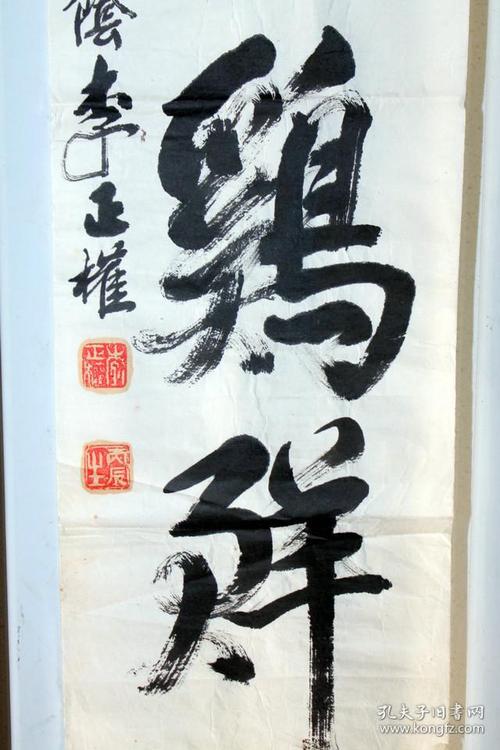 鷄群
陰李正權
李正權
丙辰生
孔夫子旧书网
www.kongfz.com